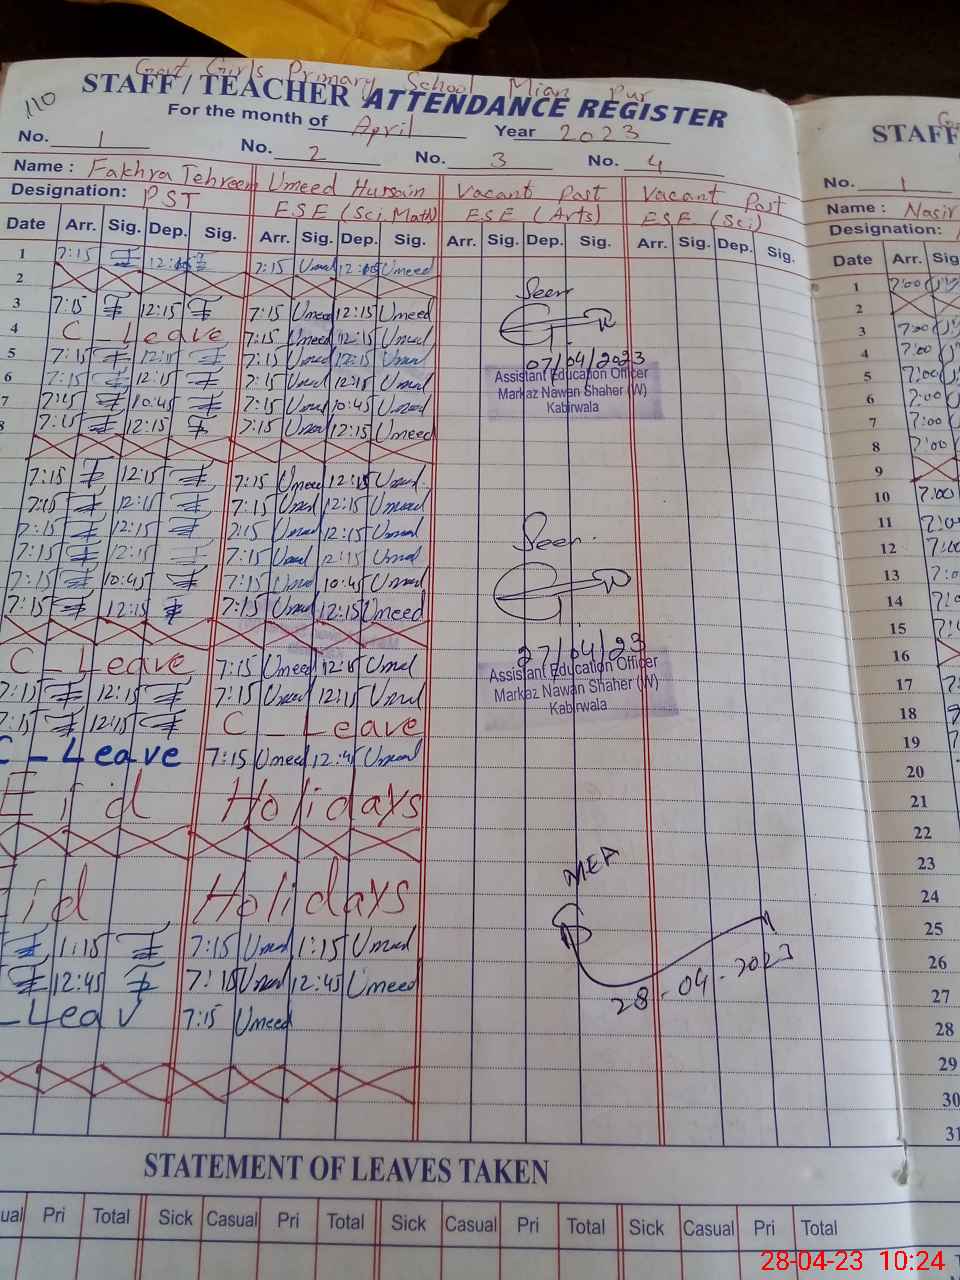 Govt Girls Primary School Mian Pur
110
STAFF / TEACHER ATTENDANCE REGISTER
For the month of April Year 2023
No. 1 No. 2 No. 3 No. 4
Name : Fakhra Tehreem Umeed Hussain Vacant Post Vacant Post
Designation: PST ESE (Sci, Math) ESE (Arts) ESE (Sci)
Date Arr. Sig. Dep. Sig. Arr. Sig. Dep. Sig. Arr. Sig. Dep. Sig. Arr. Sig. Dep. Sig.
1 7:15 7:15 Umeed
2
3 7:15 12:15 7:15 Umeed 12:15 Umeed
4 C - Leave 7:15 Umeed 12:15 Umeed
5 7:15 12:15 7:15 Umeed 12:15 Umeed
6 7:15 12:15 7:15 Umeed 12:15 Umeed
7 7:15 10:45 7:15 Umeed 10:45 Umeed
8 7:15 12:15 7:15 Umeed 12:15 Umeed
7:15 12:15 7:15 Umeed 12:15 Umeed
7:15 12:15 7:15 Umeed 12:15 Umeed
7:15 12:15 7:15 Umeed 12:15 Umeed
7:15 12:15 7:15 Umeed 12:15 Umeed
7:15 10:45 7:15 Umeed 10:45 Umeed
7:15 12:15 7:15 Umeed 12:15 Umeed
C - Leave 7:15 Umeed 12:15 Umeed
7:15 12:15 7:15 Umeed 12:15 Umeed
7:15 12:15 C - Leave
C - Leave 7:15 Umeed 12:45 Umeed
Eid Holidays
Eid Holidays
1:15 7:15 Umeed 1:15 Umeed
12:45 7:15 Umeed 12:45 Umeed
- Leav 7:15 Umeed
Seen
07/04/2023
Assistant Education Officer
Markaz Nawan Shaher (W)
Kabirwala
Seen.
27/04/23
Assistant Education Officer
Markaz Nawan Shaher (W)
Kabirwala
MEA
28-04-2023
STATEMENT OF LEAVES TAKEN
ual Pri Total Sick Casual Pri Total Sick Casual Pri Total Sick Casual Pri Total
STAFF
No. 1
Name : Nasir
Designation:
Date Arr. Sig
1 7:00
2
3 7:00
4 7:00
5 7:00
6 7:00
7 7:00
8 7:00
9
10 7:00
11 7:0
12 7:00
13 7:0
14 7:0
15
16
17
18
19
20
21
22
23
24
25
26
27
28
29
30
31
28-04-23 10:24